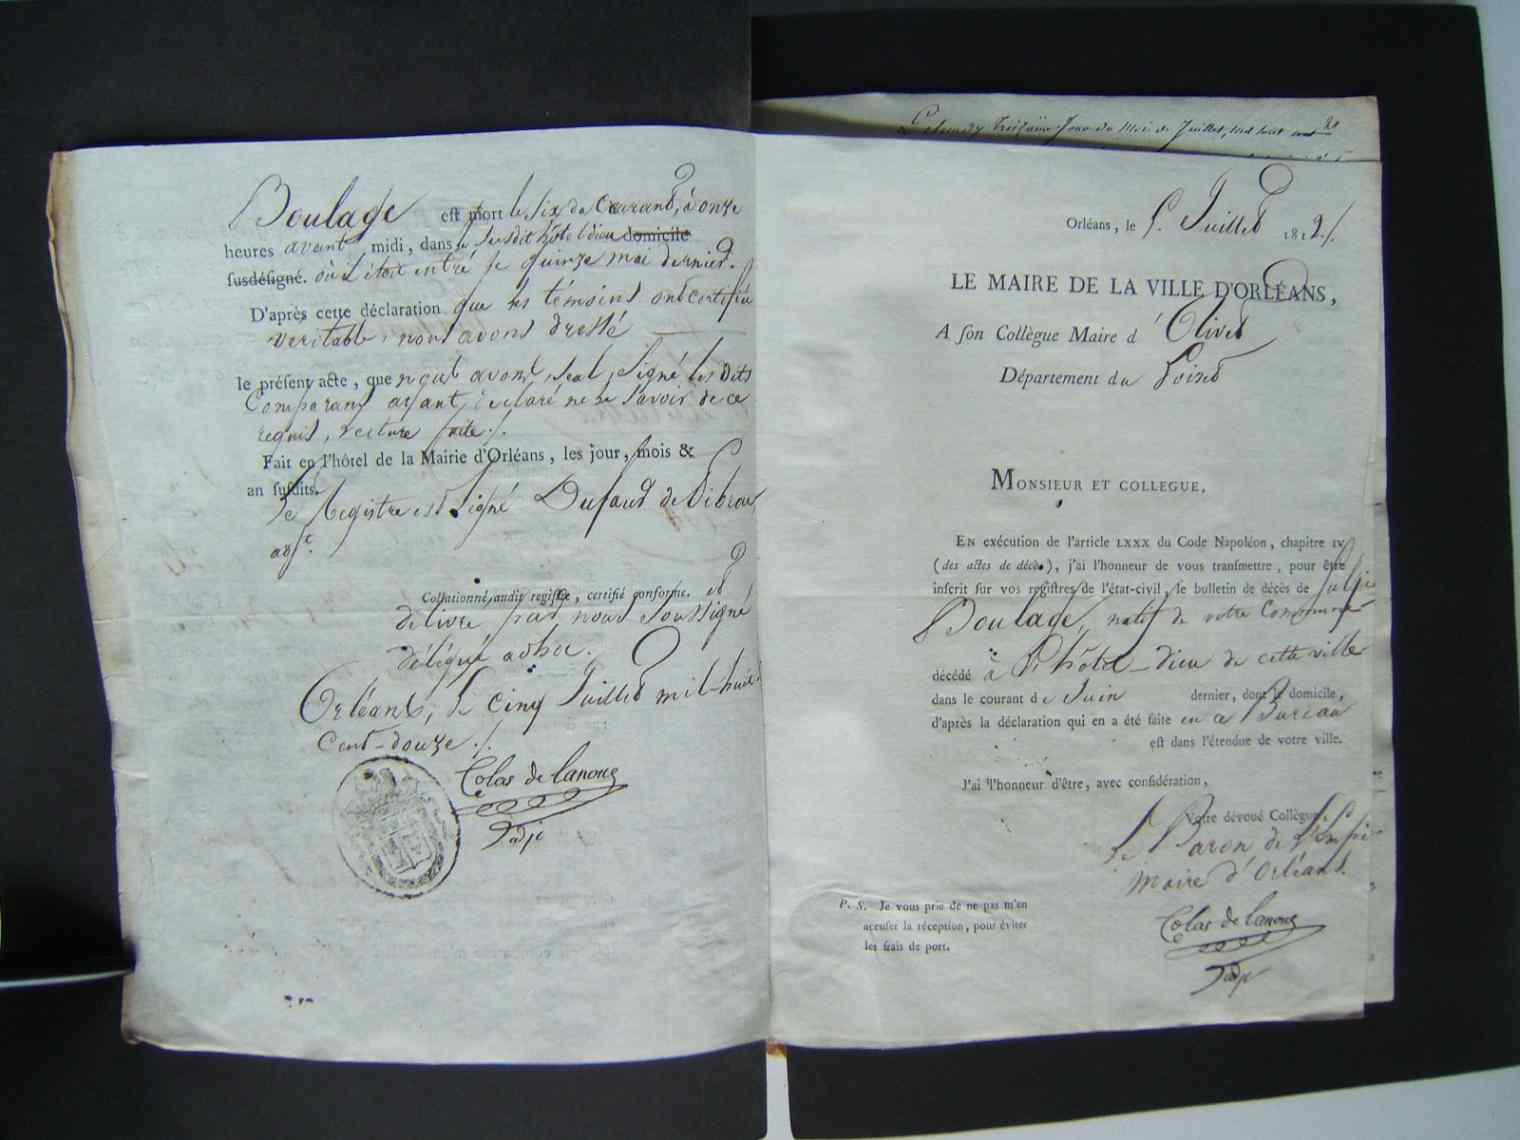 Boulage est mort le six du Courant, à onze
heures avant midi, dans le susdit hôtel dieu domicile
susdésigné. où il étoit entré le quinze mai dernier.
D'après cette déclaration que les témoins ont certifiée
veritable, nous avons dressé
le présent acte, que nous avons seul signé les dits
Comparans ayant declaré ne le savoir de ce
requis, lecture faite ./.
Fait en l'hôtel de la Mairie d'Orléans, les jour, mois &
an susdits.
le Registre est signé Dufaur de Pibrac
adj.
Collationné audit registre, certifié conforme. et
delivré par nous soussigné
délégué adhoc.
Orléans, le cinq Juillet mil-huit-
Cent-douze ./.
Colas de lanoue
adj.
Le lundy treizième Jour du Mois de Juillet, mil huit cent
Orléans, le 5. Juillet 1812 ./.
LE MAIRE DE LA VILLE D'ORLÉANS,
A son Collègue Maire d'Olivet
Département du Loiret
MONSIEUR ET COLLEGUE,
EN exécution de l'article LXXX du Code Napoléon, chapitre IV
(des actes de décès), j'ai l'honneur de vous transmettre, pour être
inscrit sur vos registres de l'état-civil, le bulletin de décès de
Boulage, natif de votre Commune
décédé à l'hôtel-Dieu de cette ville
dans le courant de Juin dernier, dont le domicile,
d'après la déclaration qui en a été faite en ce Bureau
est dans l'étendue de votre ville.
J'ai l'honneur d'être, avec considération,
Votre dévoué Collègue.
le Baron de l'Empire
Maire d'Orléans.
Colas de lanoue
adj.
P. S. Je vous prie de ne pas m'en
accuser la réception, pour éviter
les frais de port.